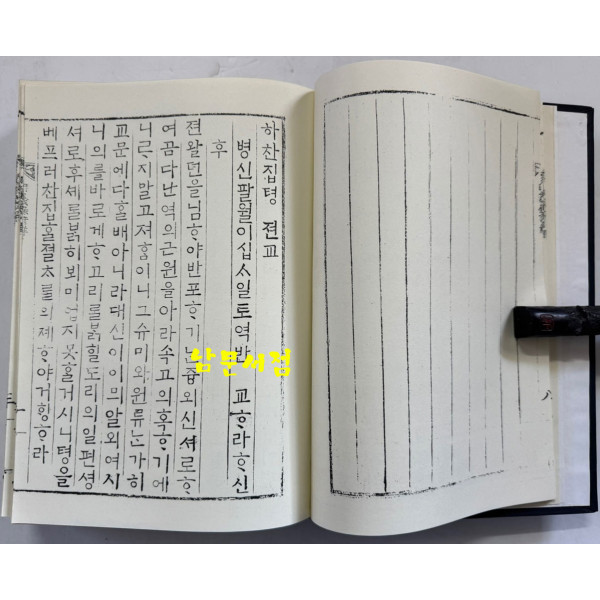 하찬집텽 젼교
병신팔월이십ᄉ일토역반 교ᄒᆞ라ᄒᆞ신
후
젼왈뎐을님ᄒᆞ야반포ᄒᆞ기ᄂᆞᆫ즁외신셔로ᄒᆞ
여곰다난역의근원을아라속고의혹ᄒᆞ기에
니르지말고져홈이니그슈미와원류ᄂᆞᆫ가히
교문에다홀배아니라대신이이믜알외여시
니의를바로게ᄒᆞ고리를붉힐도리의일편셩
셔로후셰를붉히뵈미업지못홀거시니텽을
베프러찬집홀졀太를의졔ᄒᆞ야거ᄒᆡᆼᄒᆞ라
남문서점